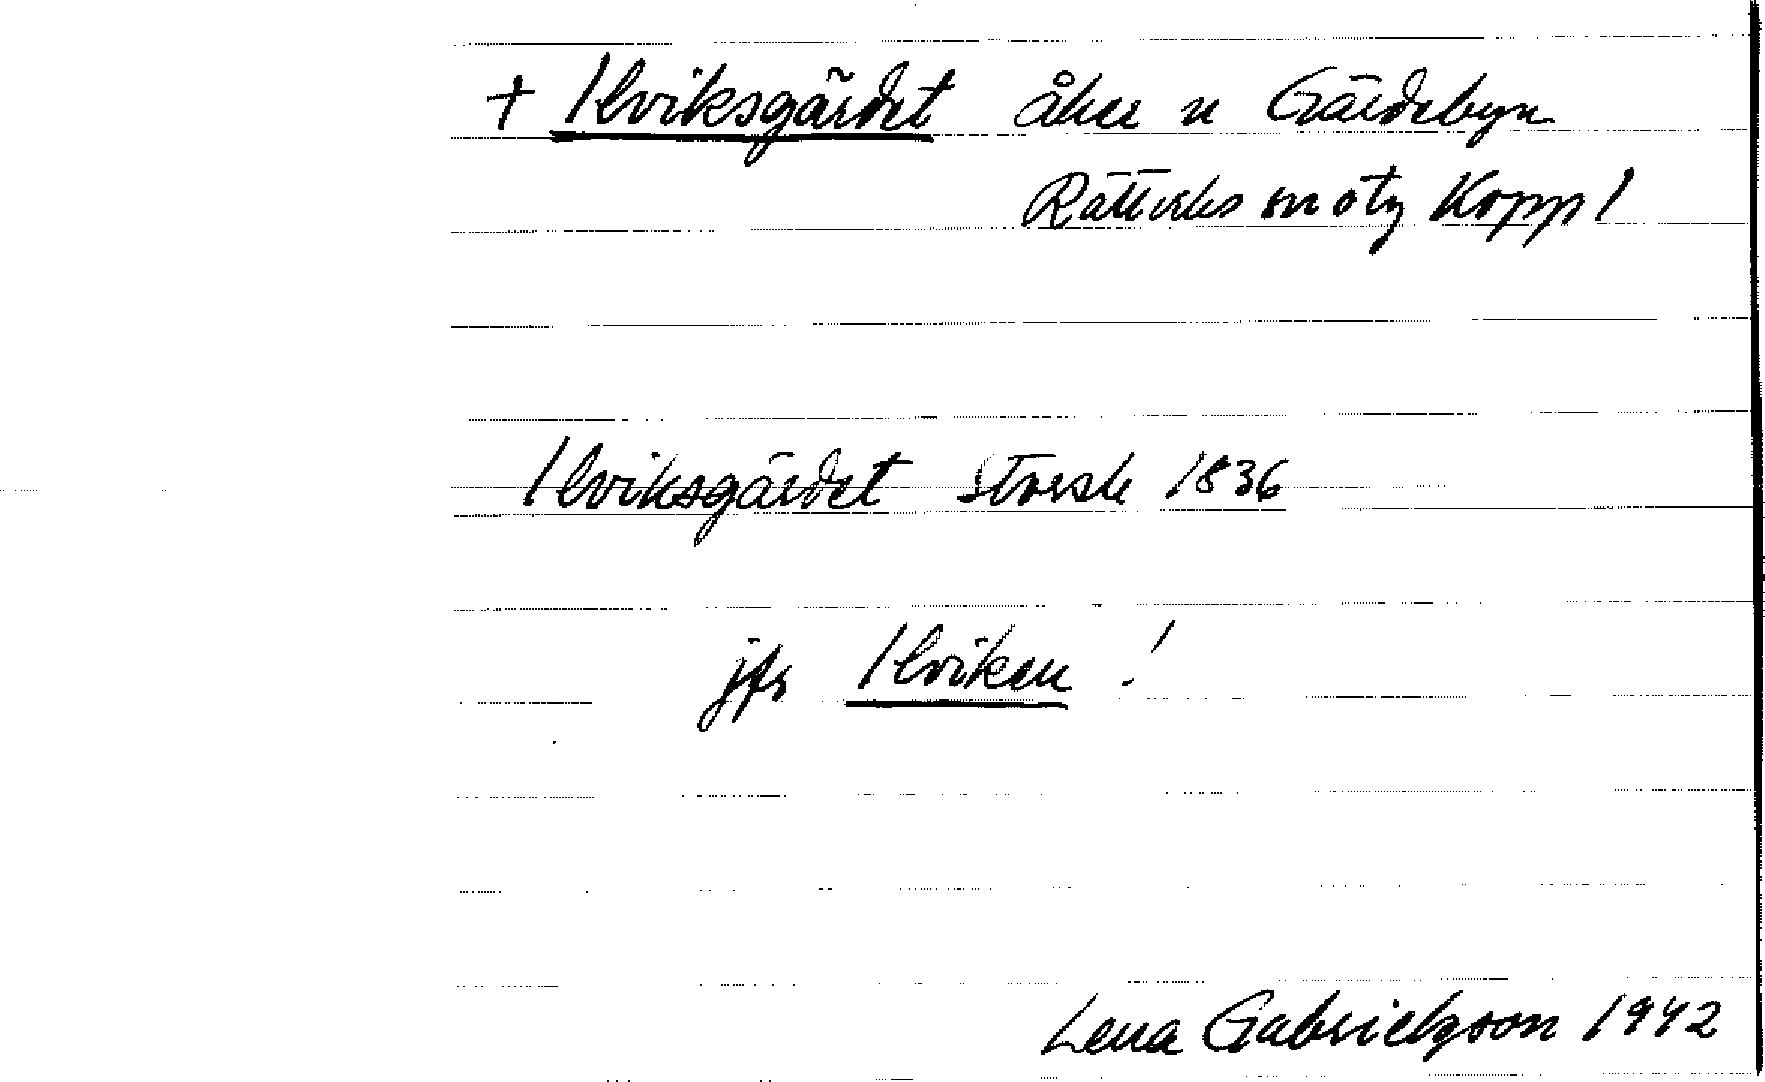 + Ilviksgärdet åker n Gärdebyn
Rättviks sn ötg Kopp l
Ilviksgärdet Storsk 1836
jfr Ilviken !
Lena Gabrielsson 1942